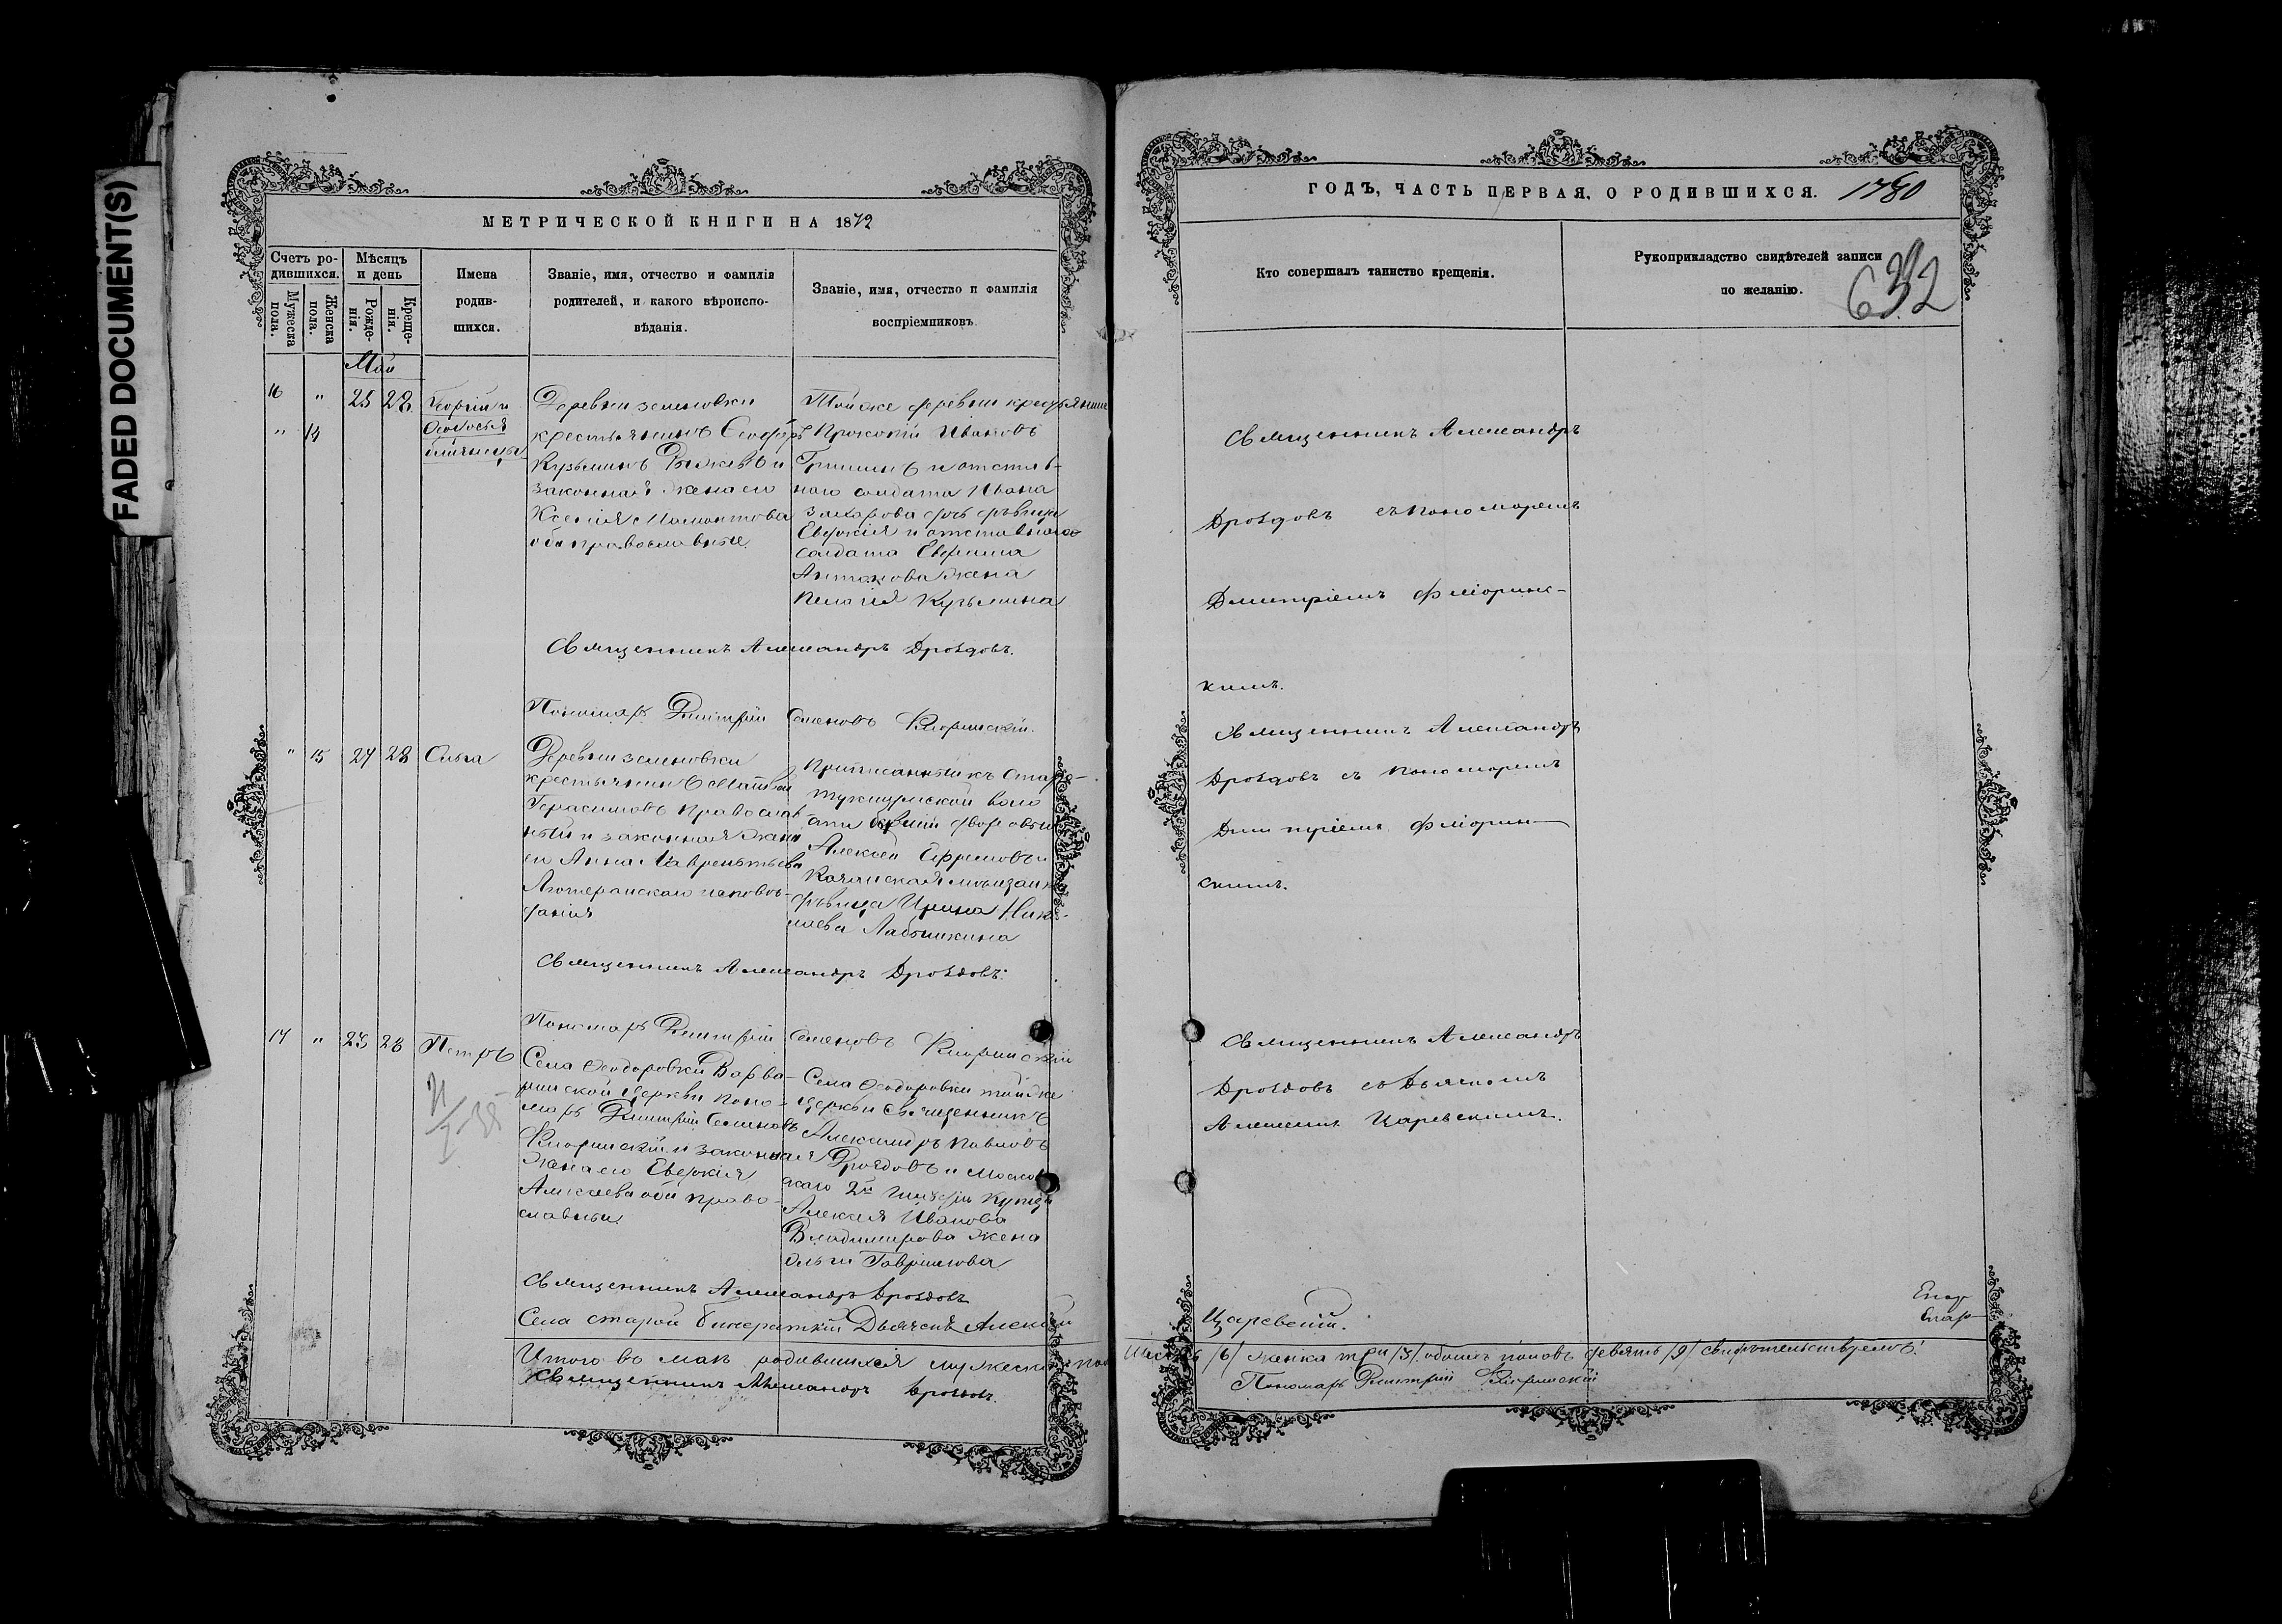 FADED DOCUMENT(S)
МЕТРИЧЕСКОЙ КНИГИ НА 1872
Счетъ ро-
дившихся.
Мужеска
пола.
Женска
пола.
Мѣсяцъ
и день
Рожде-
нія.
Креще-
нія.
Имена
родив-
шихся.
Званіе, имя, отчество и фамилія
родителей, и какого вѣроиспо-
вѣданія.
Званіе, имя, отчество и фамилія
воспріемниковъ.
Май
16 " 25 28
" 14
Георгій и
Феодосья
близнецы
Деревни
крестьянинъ
Кузьминъ и
законная жена его
Ксенія
оба православные.
Тойже деревни крестьянинъ
Прокопій Ивановъ
Гришинъ и отстав-
наго солдата Ивана
Захарова дочь дѣвица
Евдокія и отставнаго
солдата
Антонова жена
Пелагія Кузьмина
Священникъ Александръ Дроздовъ.
Пономарь Димитрій Семеновъ Флоринскій.
" 15 27 28 Ольга
Деревни
крестьянинъ Матвей
Герасимовъ православ-
ный и законная жена
его Анна Лаврентьева
Лютеранскаго исповѣ-
данія
Приписанный къ Старо-
воло
сти
Алексѣй Ефремовъ и
Казанская мѣщан
дѣвица Ирина Нико-
лаева
Священникъ Александръ Дроздовъ.
Пономарь Димитрій Семеновъ Флоринскій
17 " 28 Петръ
Села Феодоровки Варва-
ринской церкви поно-
марь Димитрій Семеновъ
Флоринскій и законная
жена его Евдокія
Алексѣева оба право-
славные
Села Феодоровки тойже
церкви Священникъ
Александръ Павловъ
Дроздовъ и Москов
скаго 2й гильдіи купца
Алексѣя Иванова
Владимирова жена
Ольга Гаврилова
Священникъ Александръ Дроздовъ
Села старой Дьячекъ Алексѣй
Итого во маѣ родившихся мужеска пола
Священникъ Александръ Дроздовъ.
ГОДЪ, ЧАСТЬ ПЕРВАЯ, О РОДИВШИХСЯ. 1780
632
Кто совершалъ таинство крещенія.
Рукоприкладство свидѣтелей записи
по желанію.
Священникъ Александръ
Дроздовъ съ пономаремъ
Димитріемъ Флоринс-
кимъ.
Священникъ Александръ
Дроздовъ съ пономаремъ
Димитріемъ Флорин-
скимъ.
Священникъ Александръ
Дроздовъ съ Дьячкомъ
Алексеемъ Царевскимъ.
Царевскій.
шесть /6/ женска три /3/. обоихъ половъ девять /9/
Пономарь Димитрій Флоринскій